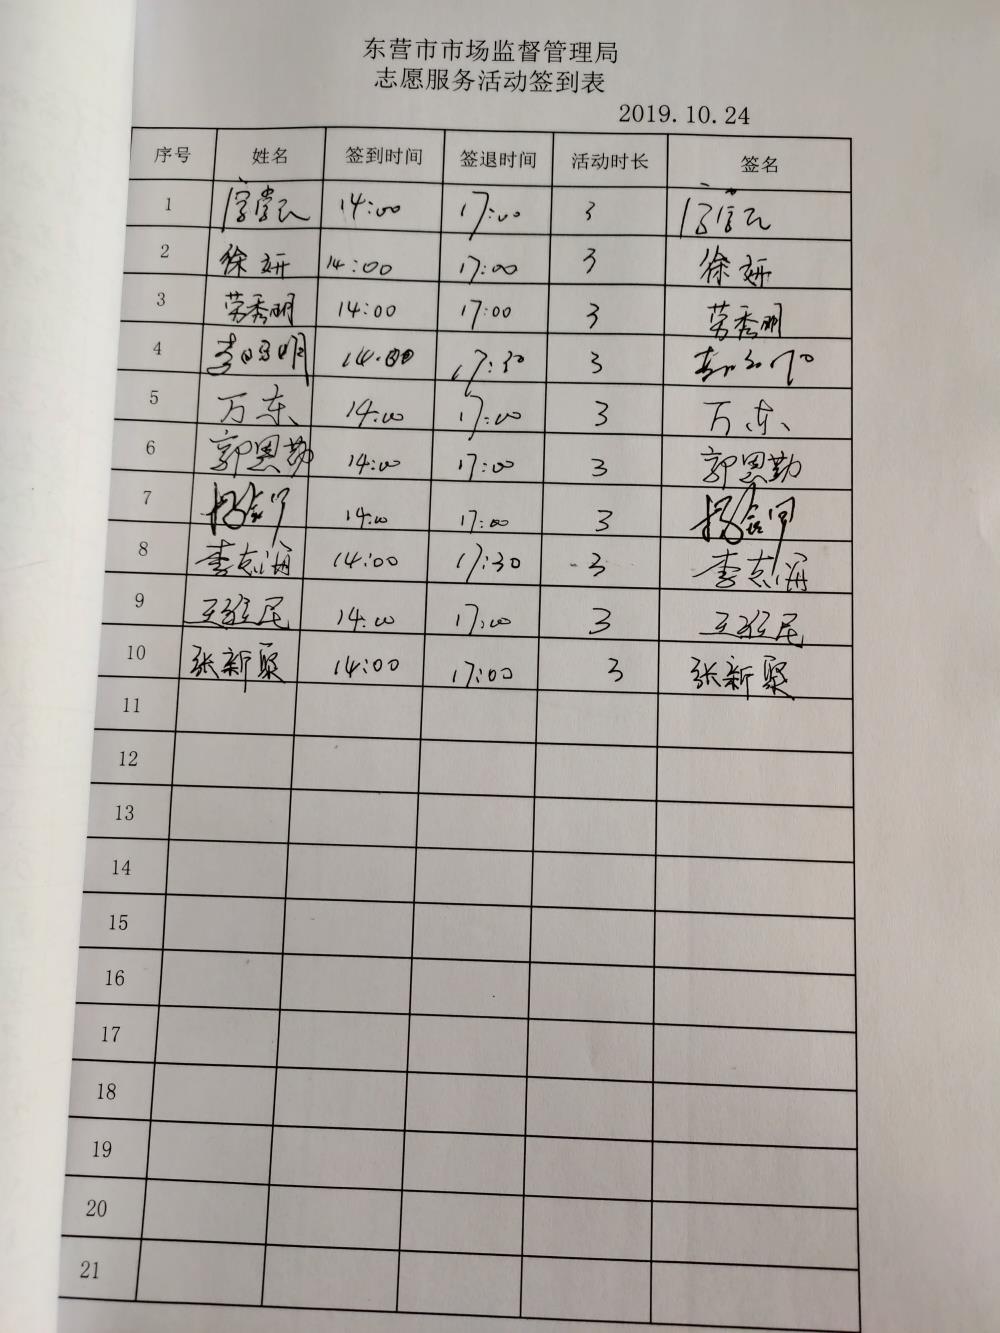 东营市市场监督管理局
志愿服务活动签到表
2019.10.24
序号 姓名 签到时间 签退时间 活动时长 签名
1 14:00 17:00 3
2 徐妍 14:00 17:00 3 徐妍
3 劳秀明 14:00 17:00 3 劳秀明
4 李 明 14:00 17:30 3
5 万东 14:00 17:00 3 万东
6 郭恩勤 14:00 17:00 3 郭恩勤
7 14:00 17:00 3
8 李志海 14:00 17:30 3 李志海
9 王 民 14:00 17:00 3 王 民
10 张新聚 14:00 17:00 3 张新聚
11
12
13
14
15
16
17
18
19
20
21